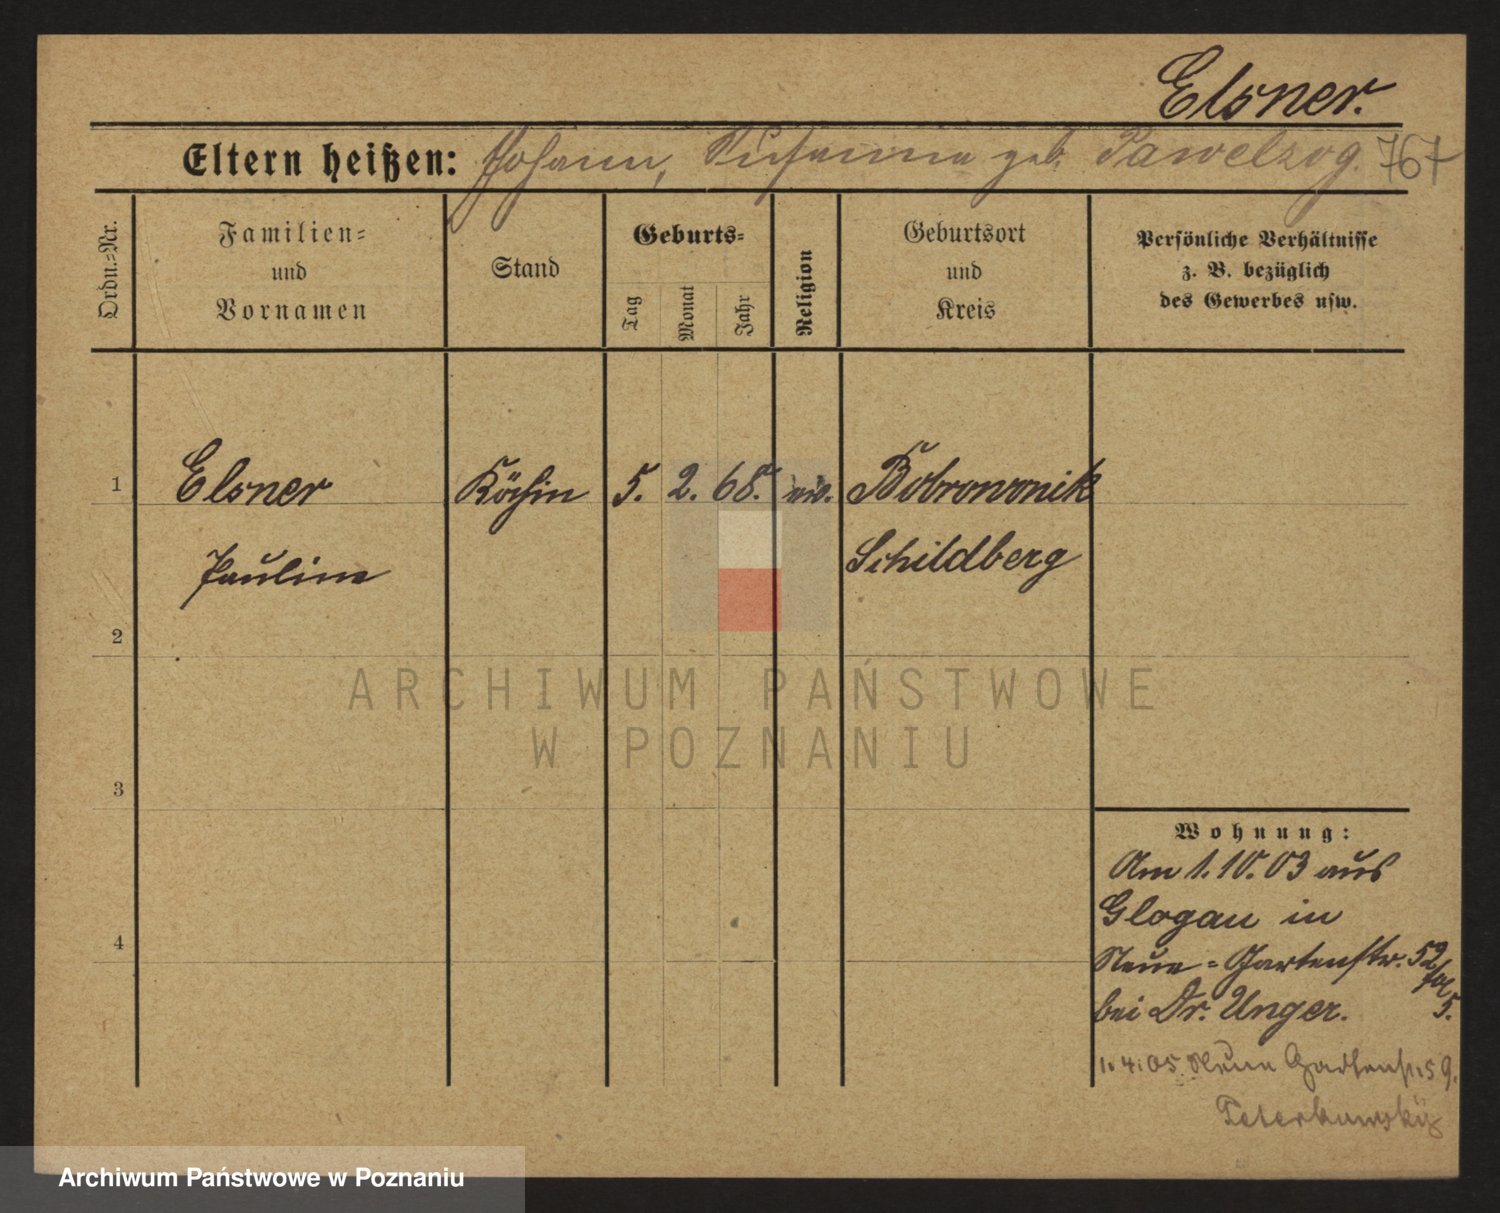 Elsner.
Eltern heißen: Johann, Susanna geb. Pawelzog. 767
Ordn.=Nr.
Familien=
und
Vornamen
Stand
Geburts=
Tag
Monat
Jahr
Religion
Geburtsort
und
Kreis
Persönliche Verhältnisse
z. B. bezüglich
des Gewerbes usw.
1 Elsner Köchin 5. 2. 68. Bobrownik
Pauline Schildberg
2
ARCHIWUM PAŃSTWOWE
W POZNANIU
3
Wohnung:
Am 1.10.03 aus
Glogau in
4
Neue=Gartenstr. 52
bei Dr. Unger. 5.
1.4.05 Neue Gartenstr. 59.
Archiwum Państwowe w Poznaniu